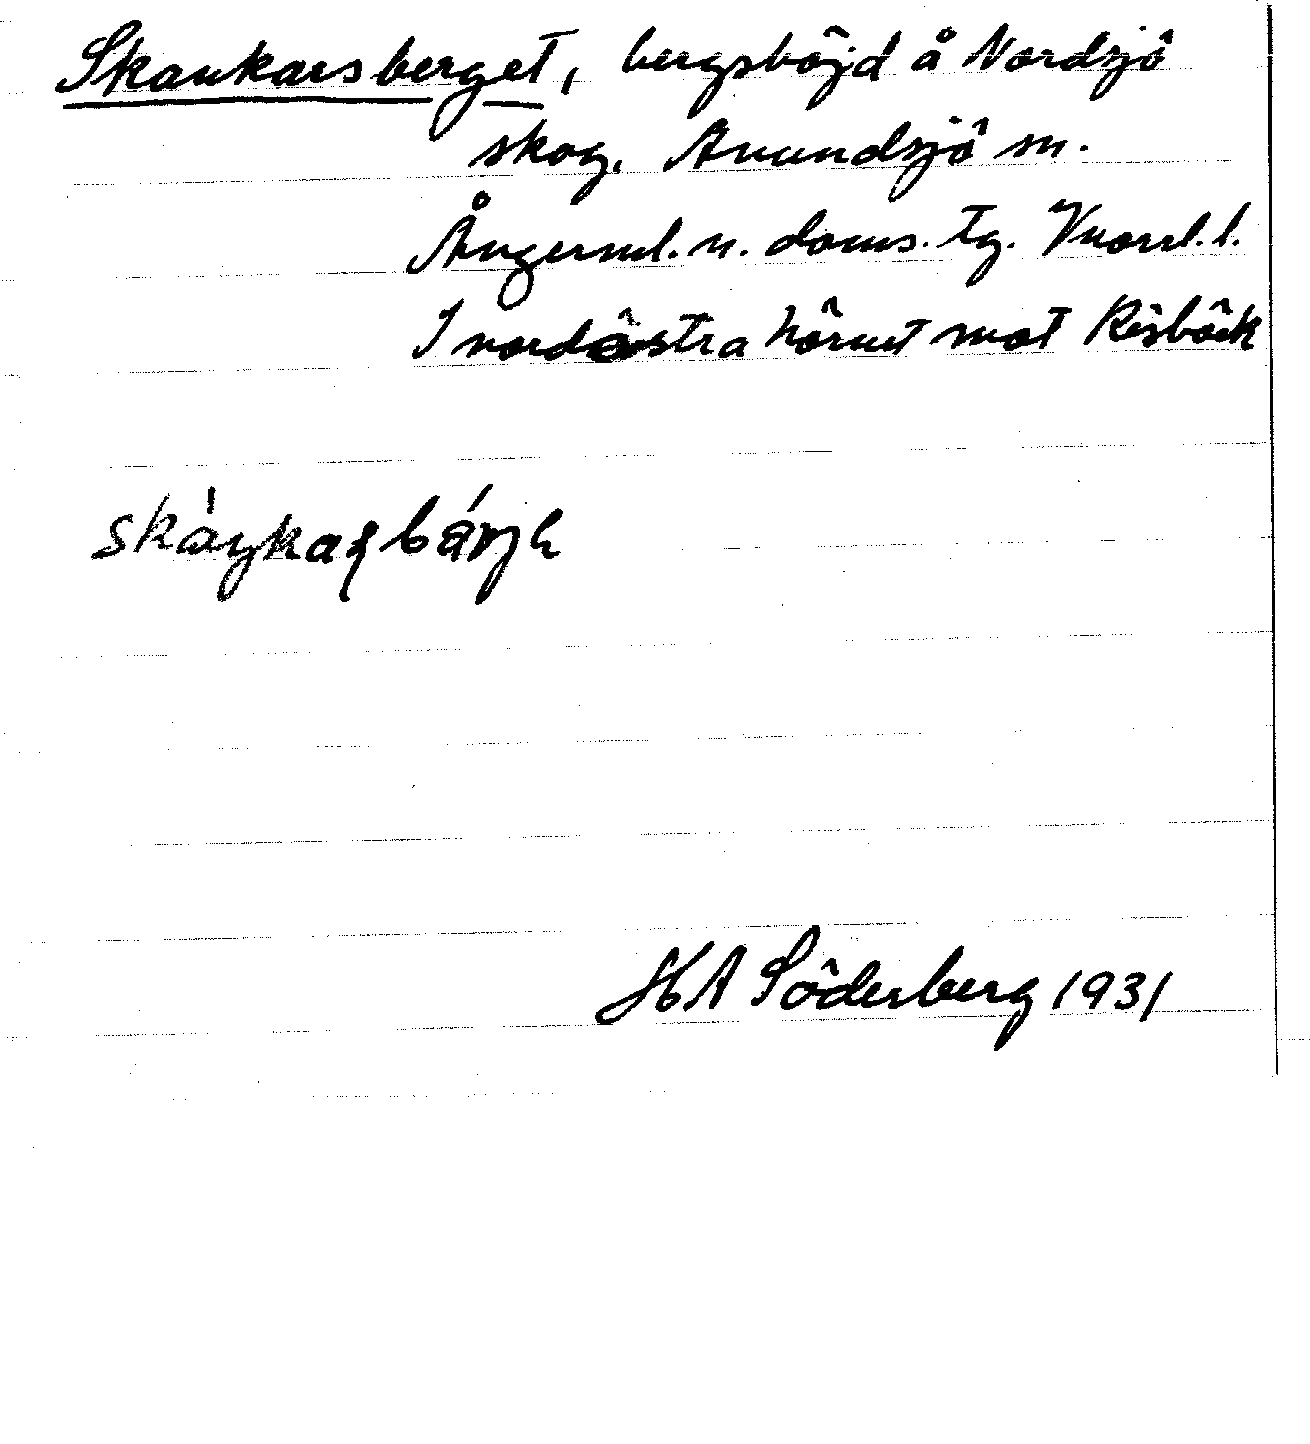 Skankarsberget, bergshöjd å Nordsjö
skog, Avundsjö sn.
Ångerml. n. doms. tg. Vnorrl. l.
I nordöstra hörnet mot Risbäck
HA Söderberg 1931